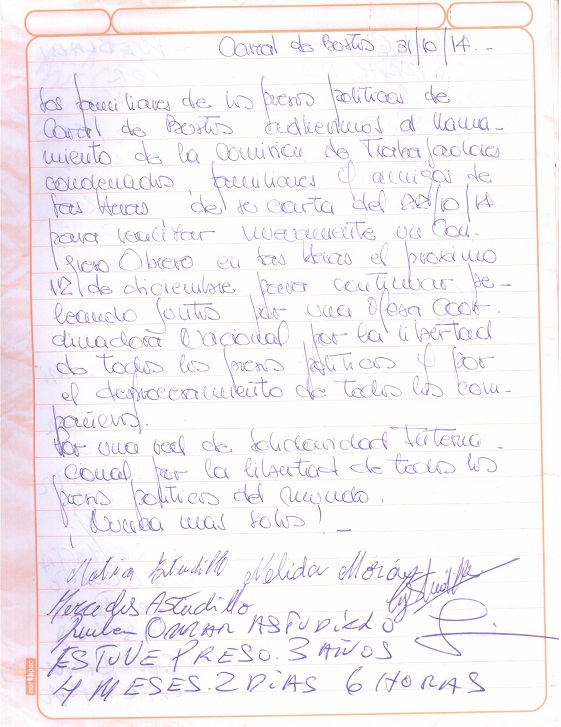 Corral de Bustos 31/10/14.-
Los familiares de los presos políticos de
Corral de Bustos adherimos al llama-
miento de la Comisión de Trabajadores
condenados, familiares y amigos de
Las Heras, de su carta del 22/10/14
para realizar nuevamente un Con-
greso Obrero en Las Heras el próximo
12/ de diciembre para continuar pe-
leando juntos por una Mesa Coor-
dinadora Nacional por la libertad
de todos los presos políticos y por
el desprocesamiento de todos los com-
pañeros.
Por una red de Solidaridad Interna-
cional por la libertad de todos los
presos políticos del mundo.
¡Nunca mas solos!-
Astudillo Nelida Morán
Mercedes Astudillo
Ruben OMAR ASTUDILLO
ESTUVE PRESO. 3 AÑOS
4 MESES. 2 DIAS 6 HORAS